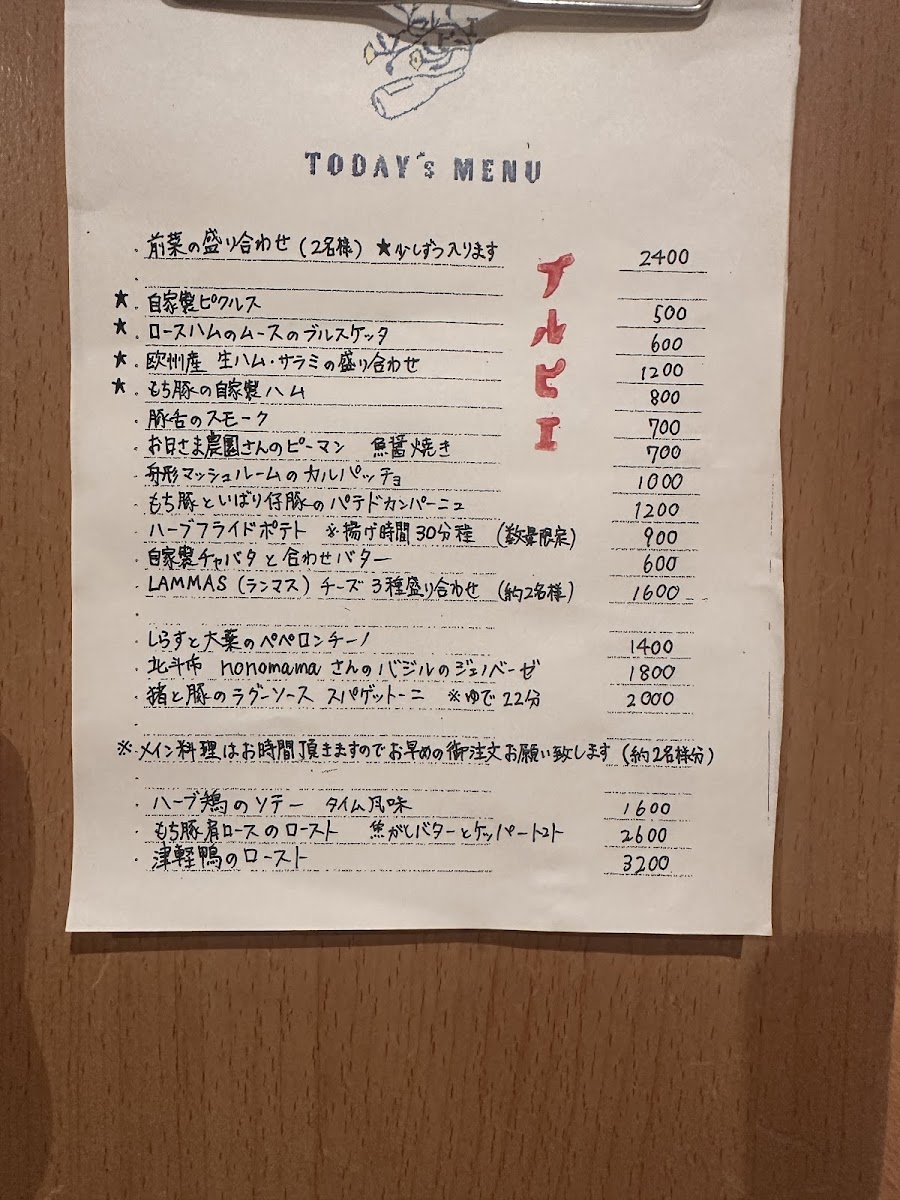 TODAY's MENU
・前菜の盛り合わせ (2名様) ★少しずつ入ります 2400
★・自家製ピクルス 500
★・ロースハムのムースのブルスケッタ 600
★・欧州産 生ハム・サラミの盛り合わせ 1200
★・もち豚の自家製ハム 800
・豚舌のスモーク 700
・お日さま農園さんのピーマン 魚醤焼き 700
・舟形マッシュルームのカルパッチョ 1000
・もち豚といばり仔豚のパテドカンパーニュ 1200
・ハーブフライドポテト ※揚げ時間30分程 (数量限定) 900
・自家製チャバタと合わせバター 600
・LAMMAS (ランマス) チーズ3種盛り合わせ (約2名様) 1600
・しらすと大葉のペペロンチーノ 1400
・北斗市 nonomamaさんのバジルのジェノベーゼ 1800
・猪と豚のラグーソース スパゲットーニ ※ゆで22分 2000
※メイン料理はお時間頂きますのでお早めの御注文お願い致します (約2名様分)
・ハーブ鶏のソテー タイム風味 1600
・もち豚肩ロースのロースト 焦がしバターとケッパートマト 2600
・津軽鴨のロースト 3200
アルピエ